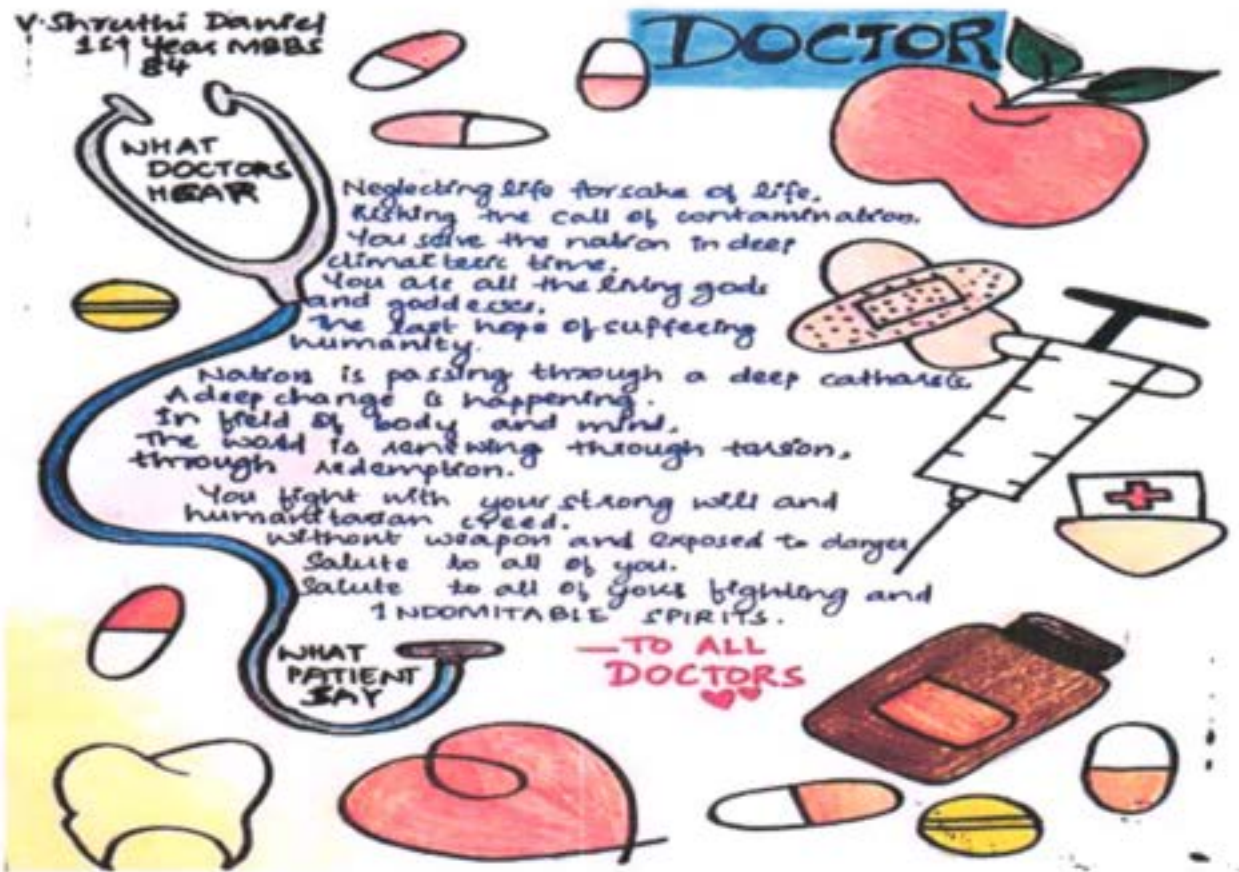 V. Shruthi Daniel
1st Year MBBS
84
DOCTOR
WHAT
DOCTORS
HEAR
Neglecting life for sake of life,
Risking the call of contamination.
You serve the nation in deep
climacteric time.
You are all the living gods
and goddesses.
The last hope of suffering
humanity.
Nation is passing through a deep catharsis
A deep change is happening.
In field of body and mind,
The world is renewing through
through redemption.
You fight with your strong will and
humanitarian creed.
Without weapon and exposed to danger
Salute to all of you.
Salute to all of your fighting and
INDOMITABLE SPIRITS.
WHAT
PATIENT
SAY
— TO ALL
DOCTORS